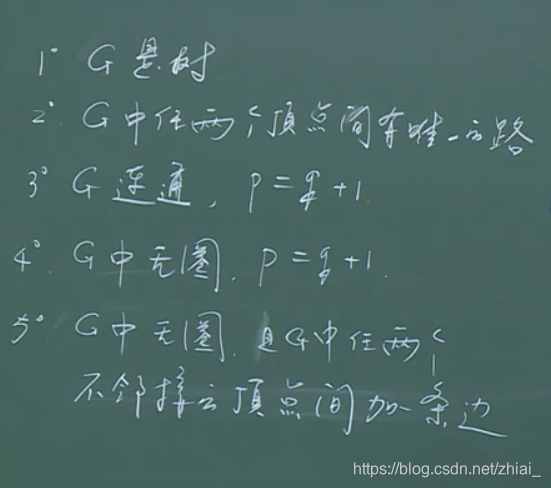 1° G是树
2° G中任两个顶点间有唯一的路
3° G连通, p=q+1.
4° G中无圈, p=q+1.
5° G中无圈, 且G中任两个
不邻接的顶点间加一条边
https://blog.csdn.net/zhiai_